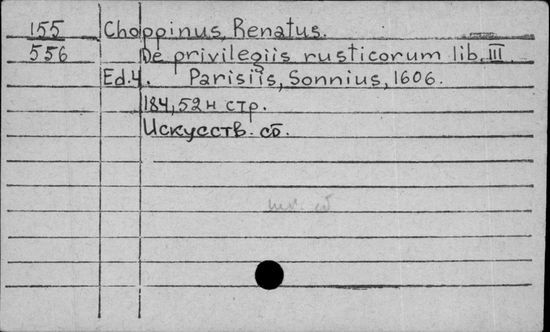 155 Choppinus, Renatus.
556 De privilegiis rusticorum lib. III.
Ed.4. Parisiis, Sonnius, 1606.
184, 52 н стр.
Искусств. сб.